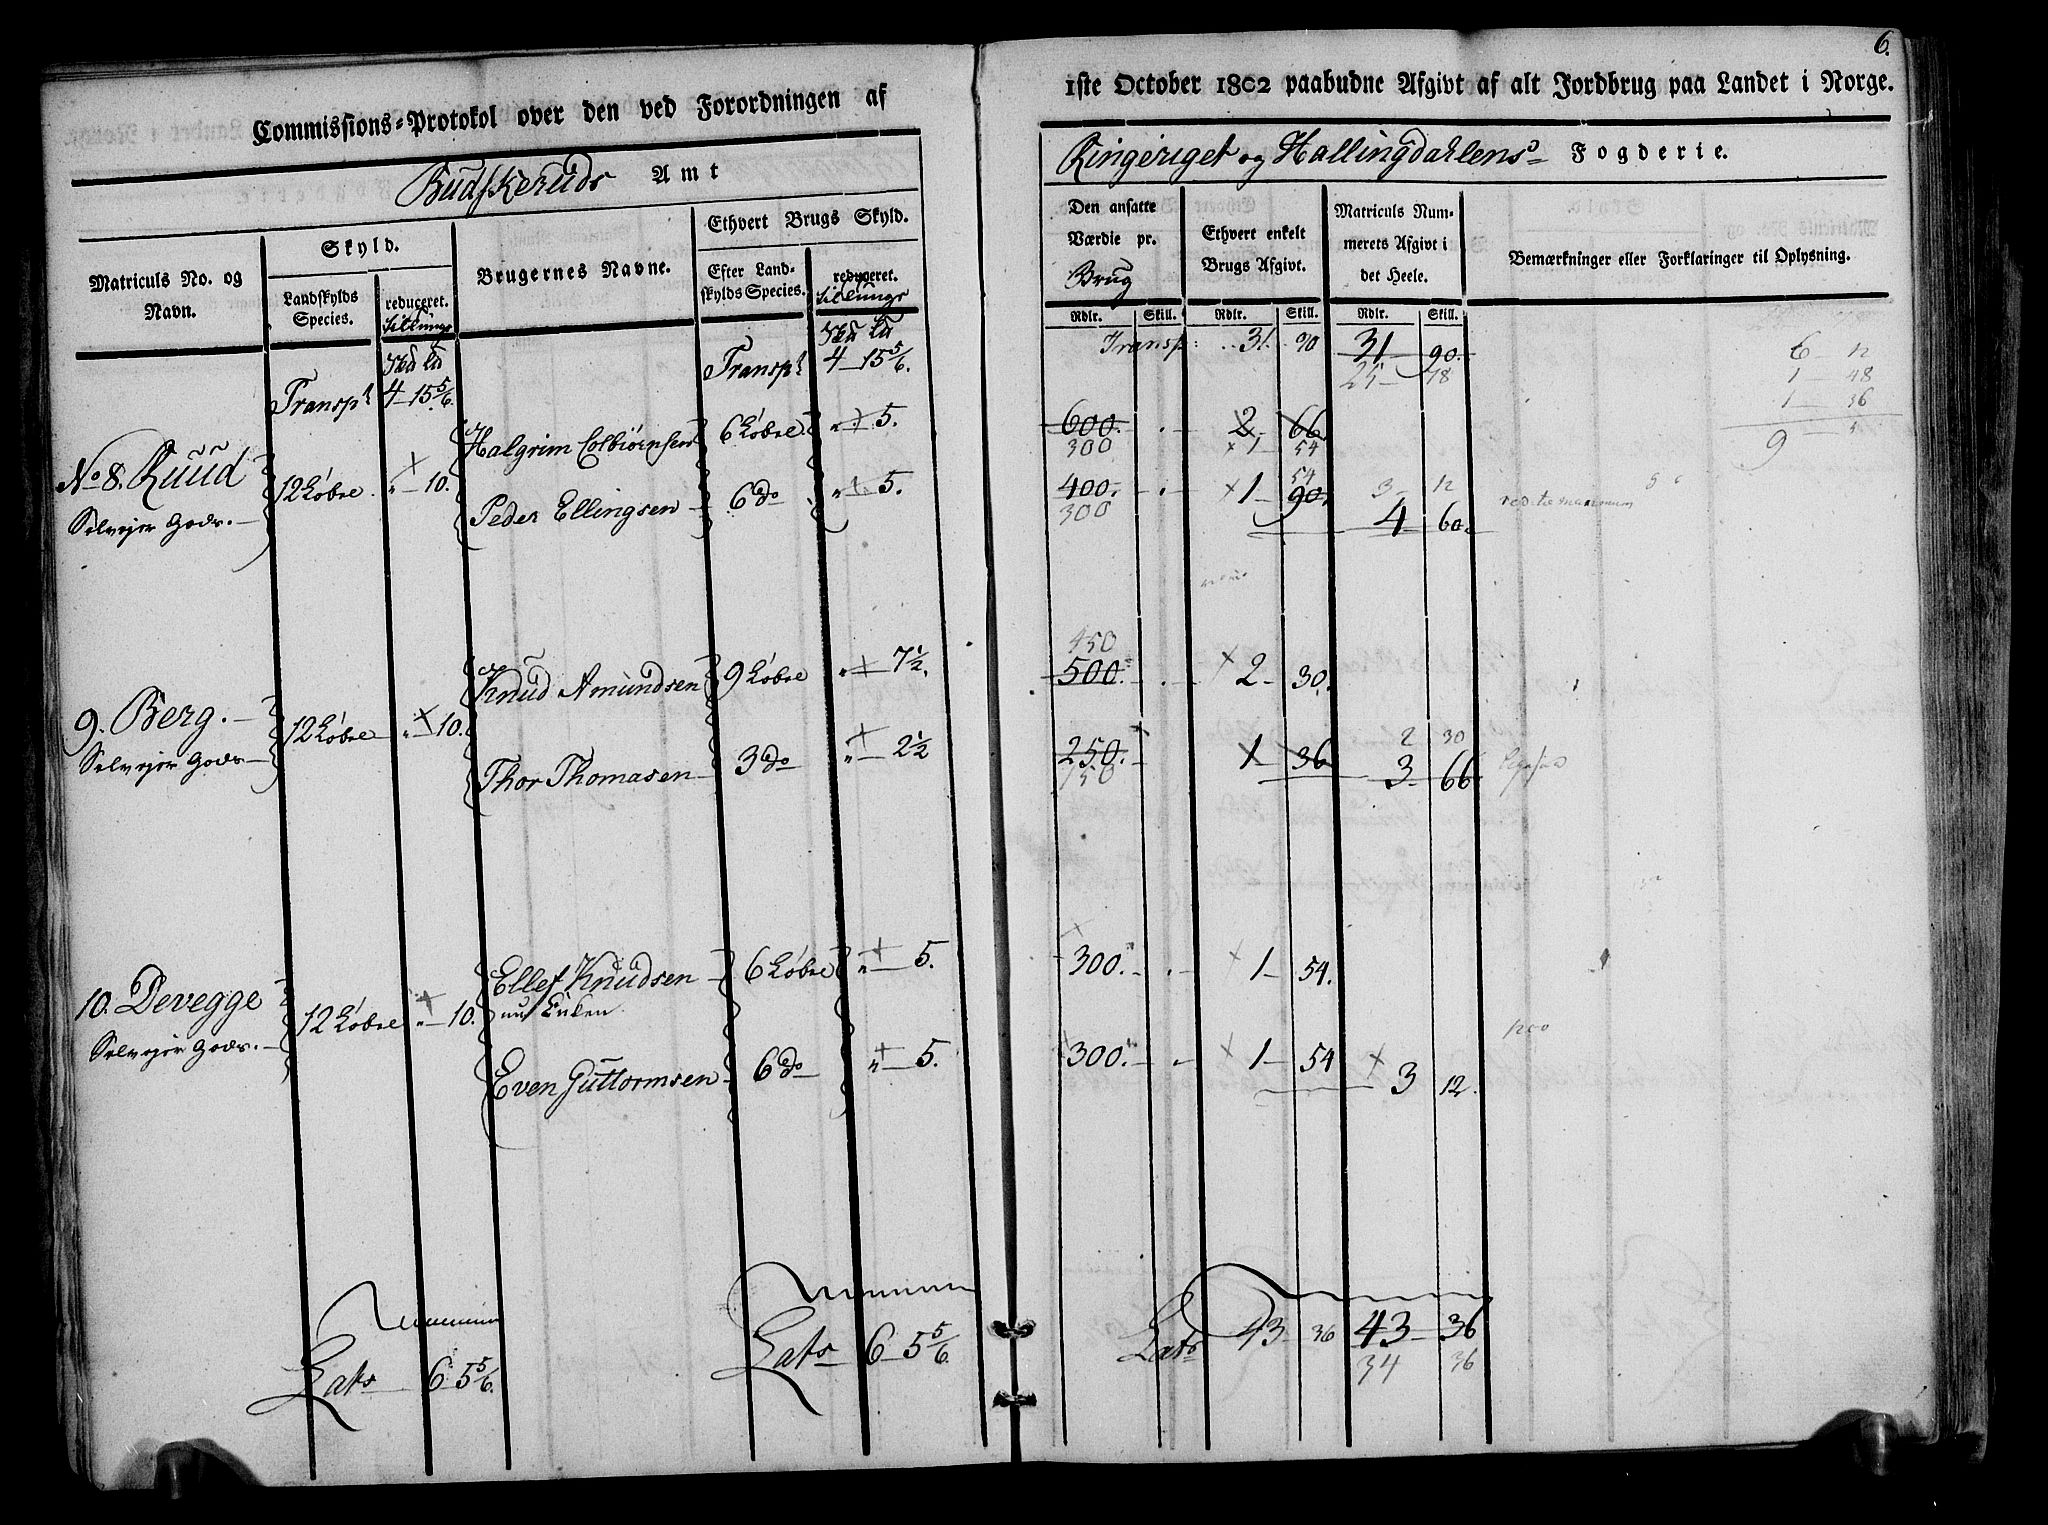 Commissions-Protokol over den ved Forordningen af
Budskeruds Amt
Matriculs No. og Navn.
Skyld.
Landskylds Species.
reduceret.
Brugernes Navne.
Ethvert Brugs Skyld.
Efter Landskylds Species.
reduceret.
Transpt 4 15 5/6. Transpt 4 15 5/6.
Halgrim Colbiörnsen 6 Løbse " 5.
No 8. Ruud 12 Løbse " 10.
Selvejer Gods.
Peder Ellingsen 6 do " 5.
Knud Amundsen 9 Løbse " 7 1/2.
9. Berg. 12 Løbse " 10.
Selvejer Gods
Thor Thomasen 3 do " 2 1/2
Ellef Knudsen 6 Løbse " 5.
10. Devegge 12 Løbse " 10.
Selvejer Gods.
Even Guttormsen 6 do " 5.
Lats 6 5 5/6. Lats 6 5 5/6.
6.
1ste October 1802 paabudne Afgivt af alt Jordbrug paa Landet i Norge.
Ringeriget og Hallingdahlens Fogderie.
Den ansatte Værdie pr. Brug
Ethvert enkelt Brugs Afgivt.
Matriculs Nummerets Afgivt i det Heele.
Bemærkninger eller Forklaringer til Oplysning.
Rdlr. Skill. Rdlr. Skill. Rdlr. Skill.
Transp: 31 90 31 90.
25 78
6 12
1 48
1 36
9
600. 2 66
300 1 54
54
400. 1 90. 3 12
300 4 60.
450
500. 2 30.
2 30
250. 1 36 3 66
150
300. 1 54.
300. 1 54
3 12.
1200
Lats 43 36 43 36
34 36